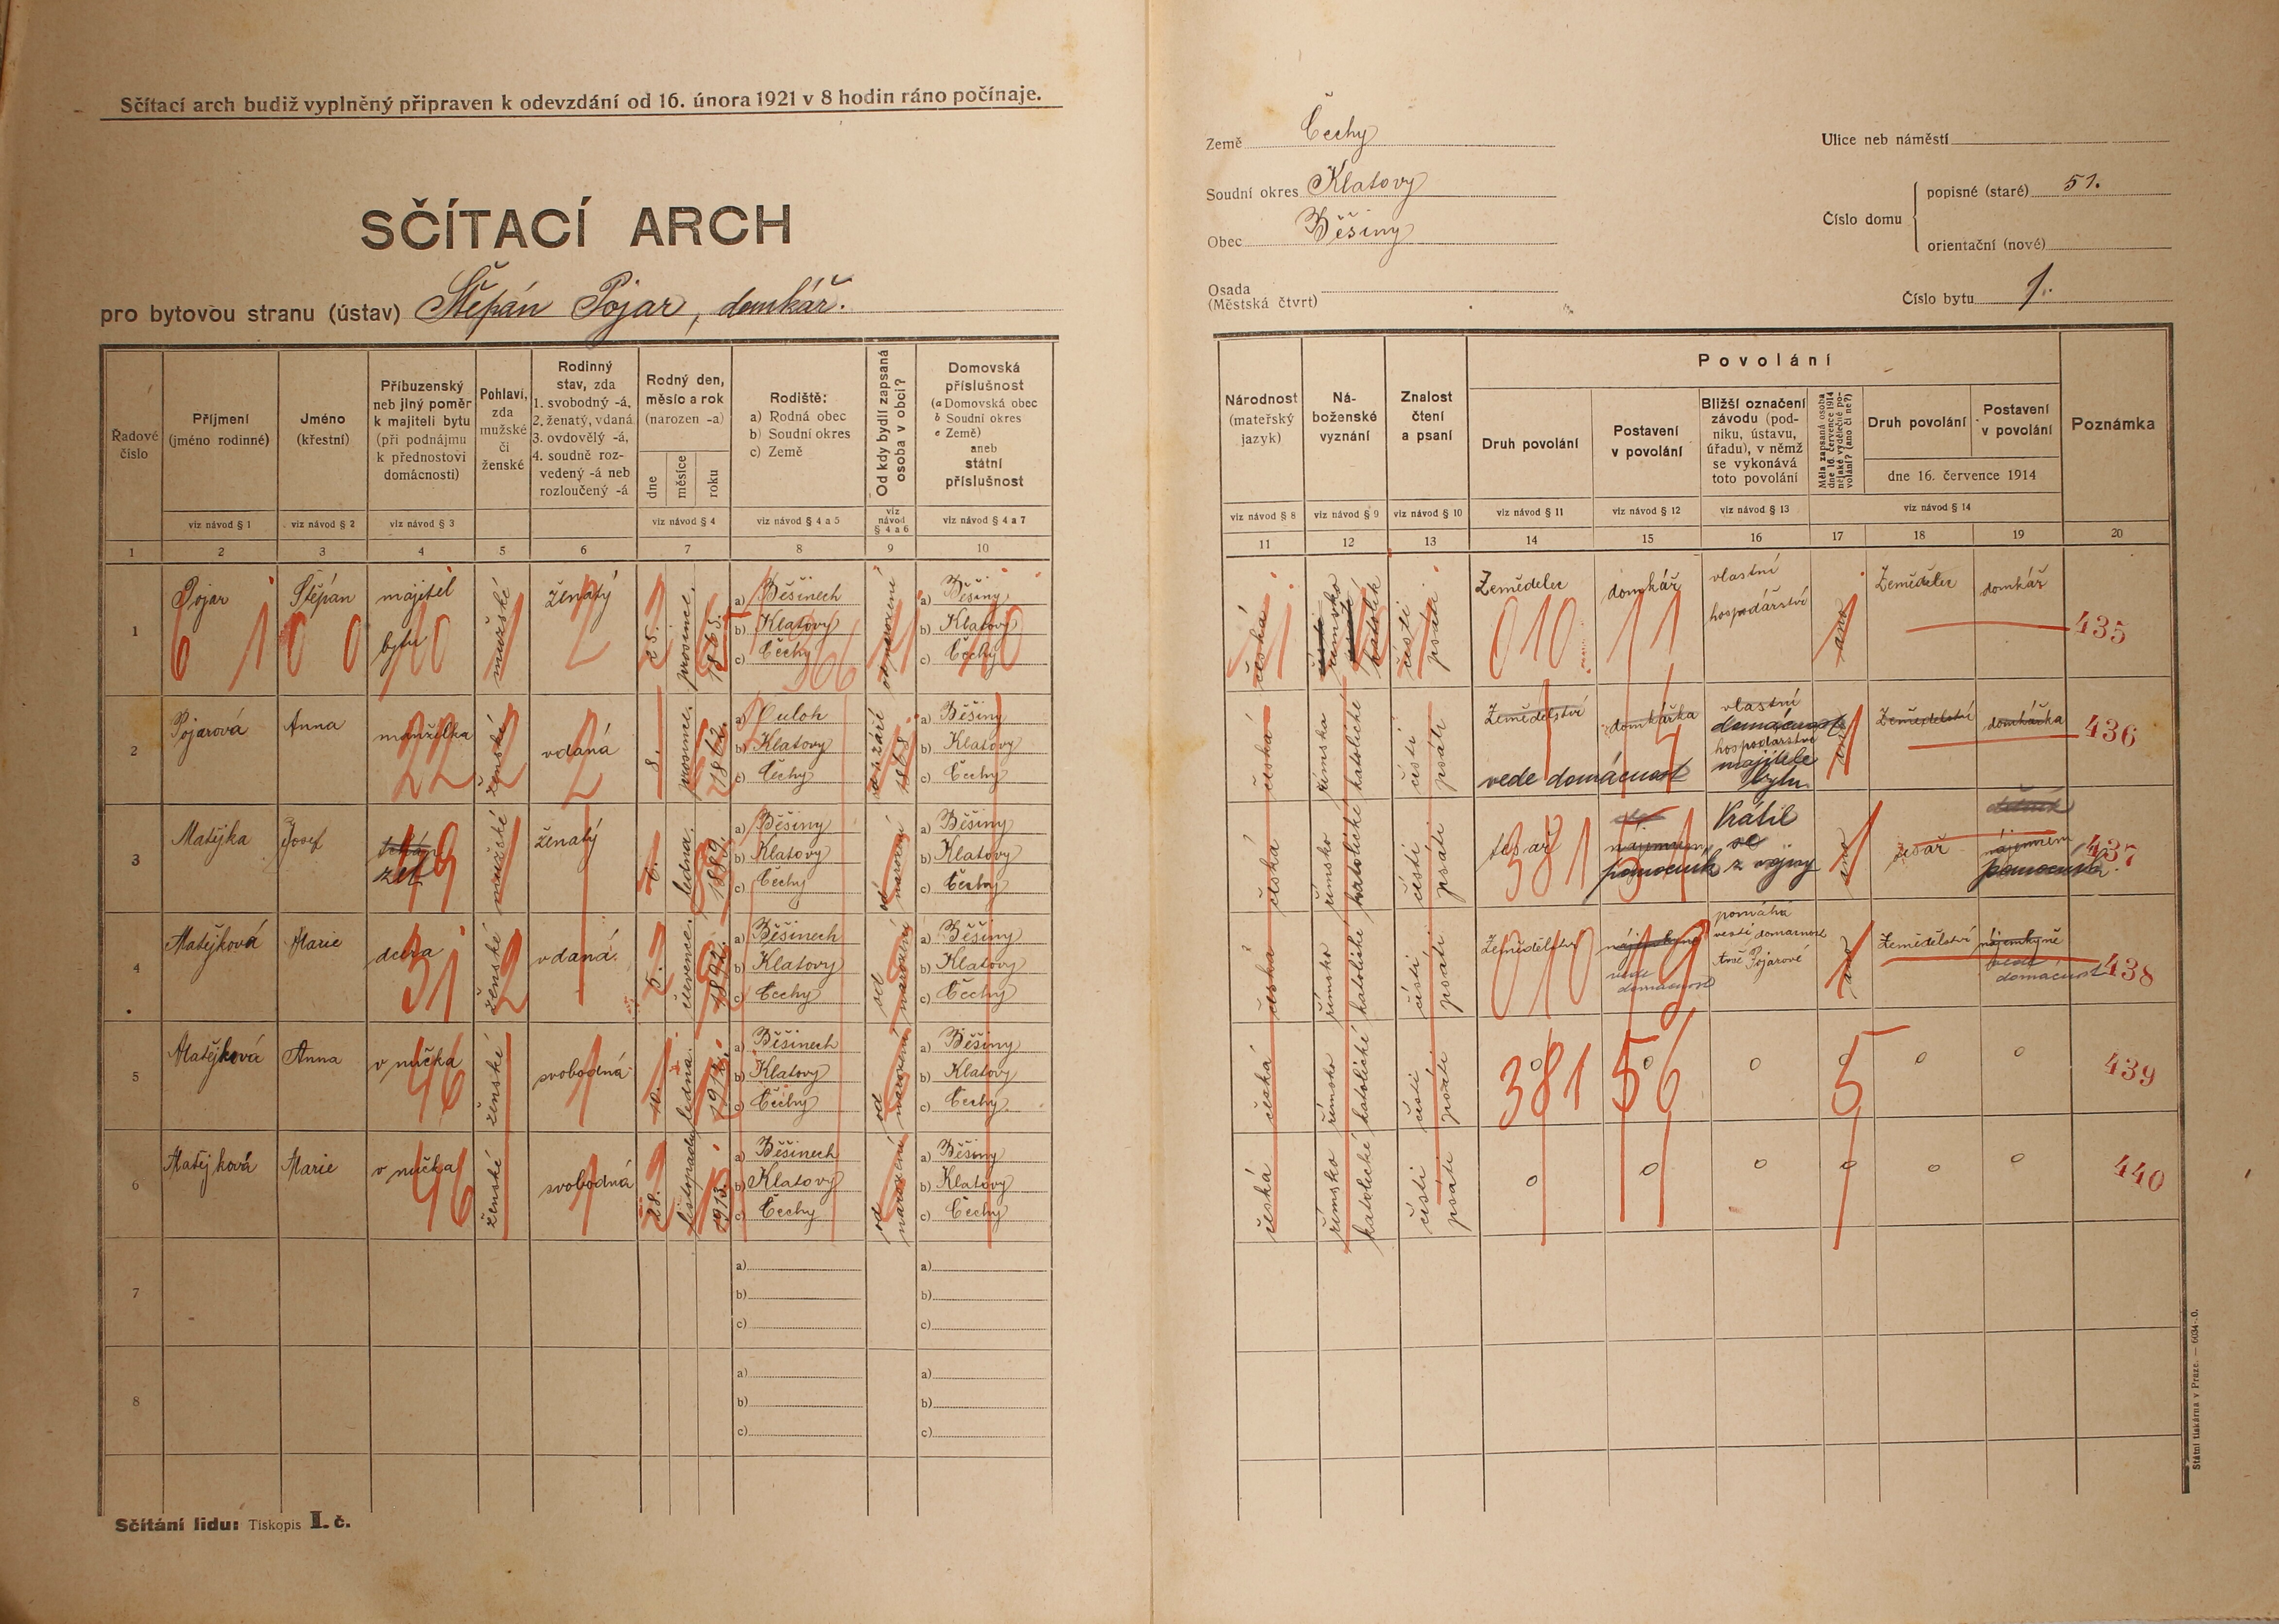 Sčítací arch budiž vyplněný připraven k odevzdání od 16. února 1921 v 8 hodin ráno počínaje.
SČÍTACÍ ARCH
pro bytovou stranu (ústav) Štěpán Pojar, domkář.
Země Čechy
Soudní okres Klatovy
Obec Běšiny
Osada
(Městská čtvrt)
Ulice neb náměstí
Číslo domu
popisné (staré) 51.
orientační (nové)
Číslo bytu 1.
Řadové číslo
Příjmení (jméno rodinné)
Jméno (křestní)
Příbuzenský neb jiný poměr k majiteli bytu (při podnájmu k přednostovi domácnosti)
Pohlaví, zda mužské či ženské
Rodinný stav, zda 1. svobodný -á, 2. ženatý, vdaná 3. ovdovělý -á, 4. soudně rozvedený -á neb rozloučený -á
Rodný den, měsíc a rok (narozen -a)
dne měsíce roku
Rodiště: a) Rodná obec b) Soudní okres c) Země
Od kdy bydlí zapsaná osoba v obci?
Domovská příslušnost (a Domovská obec b Soudní okres c Země) aneb státní příslušnost
viz návod § 1 viz návod § 2 viz návod § 3 viz návod § 4 viz návod § 4 a 5 viz návod § 4 a 6 viz návod § 4 a 7
1 2 3 4 5 6 7 8 9 10
Národnost (mateřský jazyk)
Náboženské vyznání
Znalost čtení a psaní
Povolání
Druh povolání
Postavení v povolání
Bližší označení závodu (podniku, ústavu, úřadu), v němž se vykonává toto povolání
Měla zapsaná osoba dne 16. července 1914 nějaké výdělečné povolání? (ano či ne?)
Druh povolání
Postavení v povolání
dne 16. července 1914
Poznámka
viz návod § 8 viz návod § 9 viz návod § 10 viz návod § 11 viz návod § 12 viz návod § 13 viz návod § 14
11 12 13 14 15 16 17 18 19 20
1 Pojar Štěpán majitel bytu mužské ženatý 25. prosince 1865. a) Běšinech b) Klatovy c) Čechy od narození a) Běšiny b) Klatovy c) Čechy
6 1 0 0
česká římsko katolík čísti psáti Zemědělec domkář vlastní hospodářství ano Zemědělec domkář 435
010 11
2 Pojarová Anna manželka ženské vdaná 8. prosince 1862. a) Luloh b) Klatovy c) Čechy a) Běšiny b) Klatovy c) Čechy
22 2 2
česká římsko katolické čísti psáti Zemědělství domkářka vlastní domácnost hospodářství majitele bytu ano Zemědělství domkářka 436
vede domácnost
3 Matějka Josef zeť mužské ženatý ledna 1889. a) Běšiny b) Klatovy c) Čechy od narození a) Běšiny b) Klatovy c) Čechy
česká římsko katolické čísti psáti tesař pomocník Vrátil se z vojny ano tesař pomocník 437
381 51
4 Matějková Marie dcera ženské vdaná. 5. července 1892. a) Běšinech b) Klatovy c) Čechy od narození a) Běšiny b) Klatovy c) Čechy
31 2
česká římsko katolické čísti psáti Zemědělství vede domácnost pomáhá vésti domácnost Pojarové ano Zemědělství vede domácnost 438
010 19
5 Matějková Anna vnučka ženské svobodná 10. ledna a) Běšinech b) Klatovy c) Čechy od narození a) Běšiny b) Klatovy c) Čechy
46 1
česká římsko katolické čísti psáti 0 0 0 0 0 0 439
381 56 5
6 Matějková Marie vnučka ženské svobodná 28. listopadu 1913. a) Běšinech b) Klatovy c) Čechy od narození a) Běšiny b) Klatovy c) Čechy
46 1
česká římsko katolické čísti psáti 0 0 0 0 0 0 440
7 a) b) c) a) b) c)
8 a) b) c) a) b) c)
Sčítání lidu: Tiskopis I. č.
Státní tiskárna v Praze. — 6034-.0.